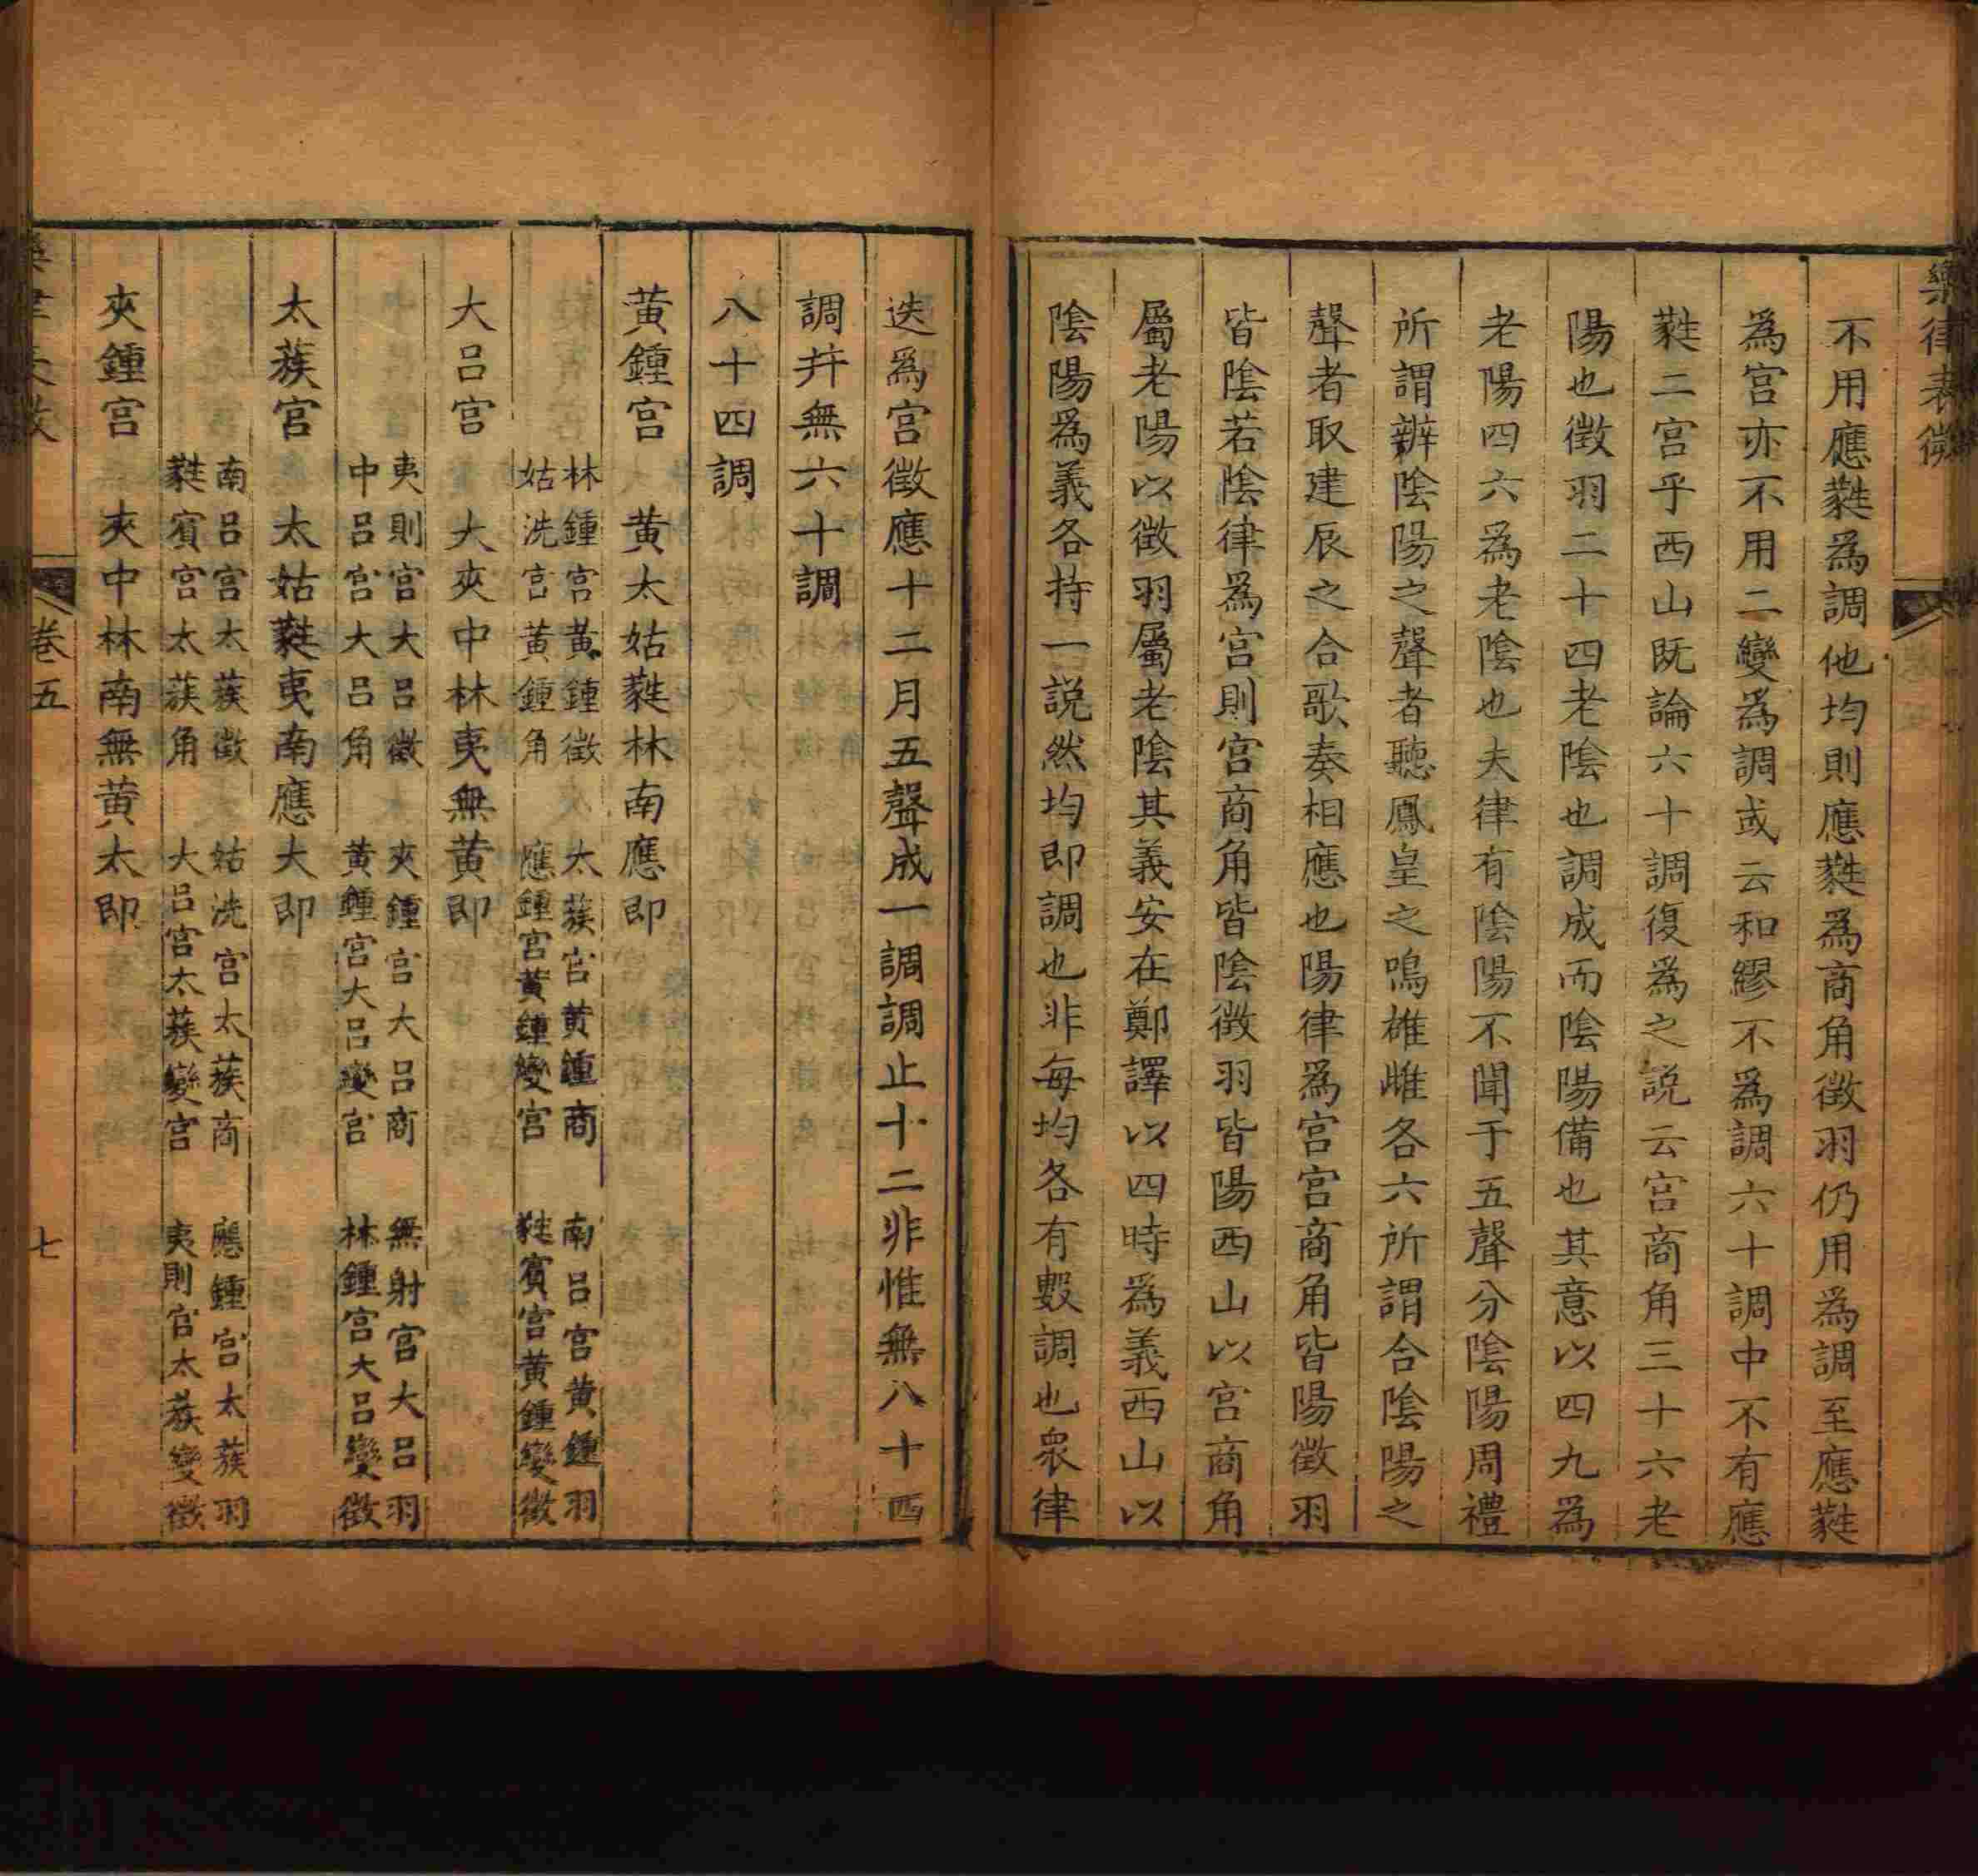 樂律表微
不用應蕤爲調他均則應蕤爲商角徵羽仍用爲調至應蕤
爲宮亦不用二變爲調或云和繆不爲調六十調中不有應
蕤二宮乎西山既論六十調復爲之説云宮商角三十六老
陽也徵羽二十四老陰也調成而陰陽備也其意以四九爲
老陽四六爲老陰也夫律有陰陽不聞于五聲分陰陽周禮
所謂辨陰陽之聲者聽鳳皇之鳴雄雌各六所謂合陰陽之
聲者取建辰之合歌奏相應也陽律爲宮宮商角皆陽徵羽
皆陰若陰律爲宮則宮商角皆陰徵羽皆陽西山以宮商角
屬老陽以徵羽屬老陰其義安在鄭譯以四時爲義西山以
陰陽爲義各持一説然均即調也非每均各有數調也衆律
迭爲宮徵應十二月五聲成一調調止十二非惟無八十四
調幷無六十調
八十四調
黃鍾宮 黃太姑蕤林南應即
林鍾宮黃鍾徵 太蔟宮黃鍾商 南呂宮黃鍾羽
姑洗宮黃鍾角 應鍾宮黃鍾變宮 蕤賓宮黃鍾變徵
大呂宮 大夾中林夷無黃即
夷則宮大呂徵 夾鍾宮大呂商 無射宮大呂羽
中呂宮大呂角 黃鍾宮大呂變宮 林鍾宮大呂變徵
太蔟宮 太姑蕤夷南應大即
南呂宮太蔟徵 姑洗宮太蔟商 應鍾宮太蔟羽
蕤賓宮太蔟角 大呂宮太蔟變宮 夷則宮太蔟變徵
夾鍾宮 夾中林南無黃太即
卷五
七